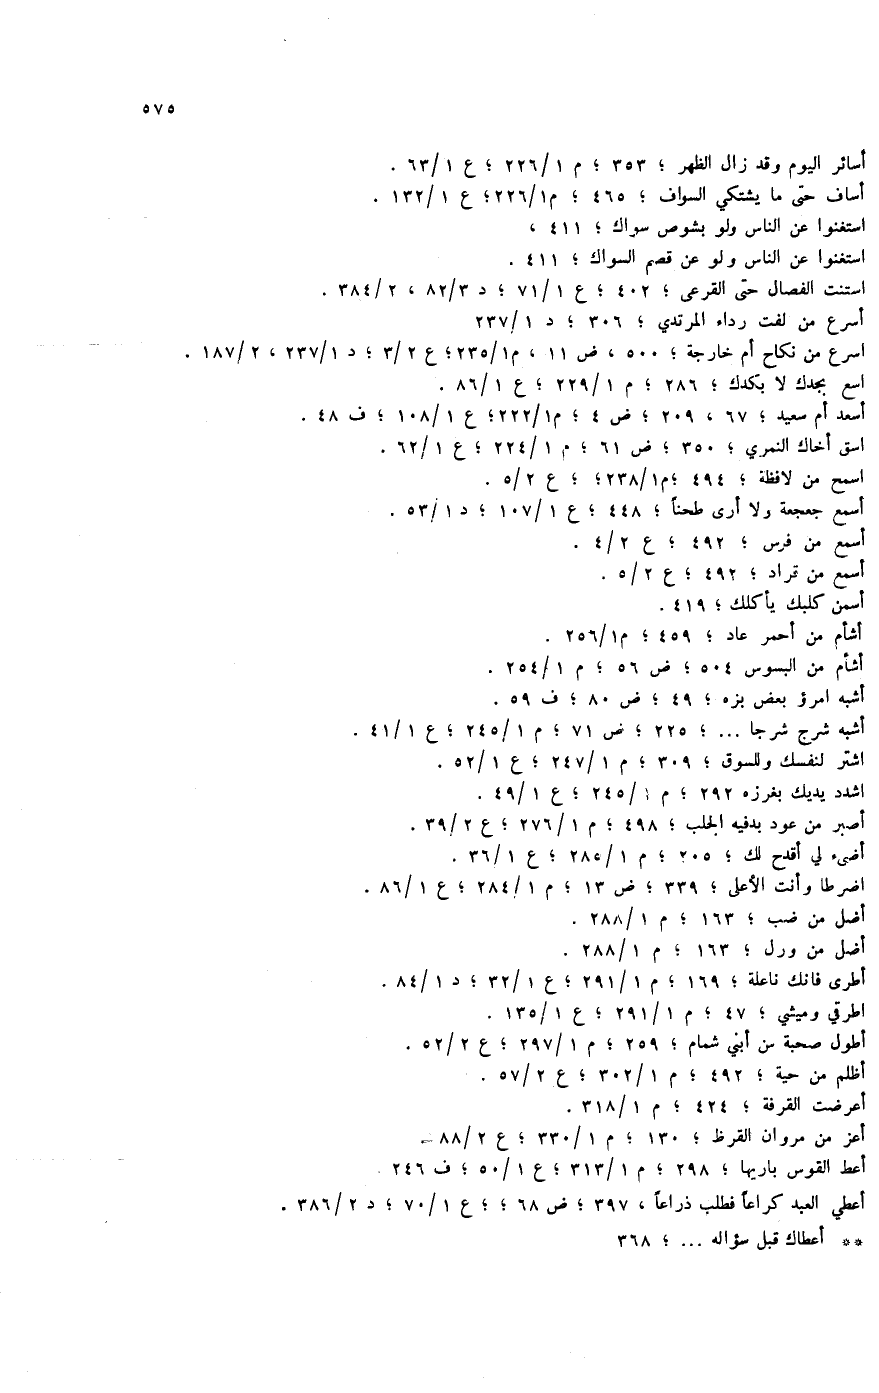 ٥٧٥
أسائر اليوم وقد زال الظهر ؛ ٣٥٣ ؛ م ٢٢٦/١ ؛ ع ٦٣/١ .
أساف حتّى ما يشتكي السواف ؛ ٤٦٥ ؛ م٢٢٦/١؛ ع ١٣٢/١ .
استغنوا عن الناس ولو بشوص سواك ؛ ٤١١ ،
استغنوا عن الناس ولو عن قصم السواك ؛ ٤١١ .
استنت الفصال حتّى القرعى ؛ ٤٠٢ ؛ ع ٧١/١ ؛ د ٨٢/٣ ، ٣٨٤/٢ .
أسرع من لفت رداء المرتدي ؛ ٣٠٦ ؛ د ٢٣٧/١
اسرع من نكاح أم خارجة ؛ ٥٠٠ ، ض ١١ ، م٢٣٥/١؛ ع ٣/٢ ؛ د ٢٣٧/١ ، ١٨٧/٢ .
اسع بجدك لا بكدك ؛ ٢٨٦ ؛ م ٢٢٩/١ ؛ ع ٨٦/١ .
أسعد أم سعيد ؛ ٦٧ ، ٢٠٩ ؛ ض ٤ ؛ م٢٢٢/١؛ ع ١٠٨/١ ؛ ف ٤٨ .
اسق أخاك النمري ؛ ٣٥٠ ؛ ض ٦١ ؛ م ٢٢٤/١ ؛ ع ٦٢/١ .
اسمح من لافظة ؛ ٤٩٤ ؛م٢٣٨/١؛ ؛ ع ٥/٢ .
أسمع جعجعة ولا أرى طحناً ؛ ٤٤٨ ؛ ع ١٠٧/١ ؛ د ٥٣/١ .
أسمع من فرس ؛ ٤٩٢ ؛ ع ٤/٢ .
أسمع من قراد ؛ ٤٩٢ ؛ ع ٥/٢ .
أسمن كلبك يأكلك ؛ ٤١٩ .
أشأم من أحمر عاد ؛ ٤٥٩ ؛ م٢٥٦/١ .
أشأم من البسوس ٥٠٤ ؛ ض ٥٦ ؛ م ٢٥٤/١ .
أشبه امرؤ بعض بزه ؛ ٤٩ ؛ ض ٨٠ ؛ ف ٥٩ .
أشبه شرج شرجا ... ؛ ٢٢٥ ؛ ض ٧١ ؛ م ٢٤٥/١ ؛ ع ٤١/١ .
اشتر لنفسك وللسوق ؛ ٣٠٩ ؛ م ٢٤٧/١ ؛ ع ٥٢/١ .
اشدد يديك بغرزه ٢٩٢ ؛ م ٢٤٥/١ ؛ ع ٤٩/١ .
أصبر من عود بدفيه الجلب ؛ ٤٩٨ ؛ م ٢٧٦/١ ؛ ع ٣٩/٢ .
أضىء لي أقدح لك ؛ ٢٠٥ ؛ م ٢٨٥/١ ؛ ع ٣٦/١ .
اضرطا وأنت الأعلى ؛ ٣٣٩ ؛ ض ١٣ ؛ م ٢٨٤/١ ؛ ع ٨٦/١ .
أضل من ضب ؛ ١٦٣ ؛ م ٢٨٨/١ .
أضل من ورل ؛ ١٦٣ ؛ م ٢٨٨/١ .
أطرى فانك ناعلة ؛ ١٦٩ ؛ م ٢٩١/١ ؛ ع ٣٢/١ ؛ د ٨٤/١ .
اطرقي وميشي ؛ ٤٧ ؛ م ٢٩١/١ ؛ ع ١٣٥/١ .
أطول صحبة من أبني شمام ؛ ٢٥٩ ؛ م ٢٩٧/١ ؛ ع ٥٢/٢ .
أظلم من حية ؛ ٤٩٢ ؛ م ٣٠٢/١ ؛ ع ٥٧/٢ .
أعرضت القرفة ؛ ٤٢٤ ؛ م ٣١٨/١ .
أعز من مروان القرظ ؛ ١٣٠ ؛ م ٣٣٠/١ ؛ ع ٨٨/٢ .
أعط القوس باريها ؛ ٢٩٨ ؛ م ٣١٣/١ ؛ ع ٥٠/١ ؛ ف ٢٤٦ .
أعطي العبد كراعاً فطلب ذراعاً ، ٣٩٧ ؛ ض ٦٨ ؛ ؛ ع ٧٠/١ ؛ د ٣٨٦/٢ .
** أعطاك قبل سؤاله ... ؛ ٣٦٨